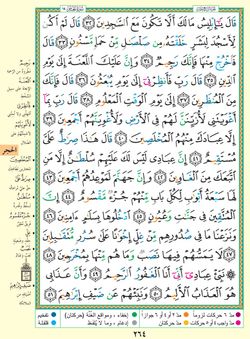 قَالَ يَٰٓإِبْلِيسُ مَا لَكَ أَلَّا تَكُونَ مَعَ ٱلسَّٰجِدِينَ ٣٢ قَالَ لَمْ أَكُن
لِّأَسْجُدَ لِبَشَرٍ خَلَقْتَهُۥ مِن صَلْصَٰلٍ مِّنْ حَمَإٍ مَّسْنُونٍ ٣٣ قَالَ
فَٱخْرُجْ مِنْهَا فَإِنَّكَ رَجِيمٌ ٣٤ وَإِنَّ عَلَيْكَ ٱللَّعْنَةَ إِلَىٰ يَوْمِ
ٱلدِّينِ ٣٥ قَالَ رَبِّ فَأَنظِرْنِىٓ إِلَىٰ يَوْمِ يُبْعَثُونَ ٣٦ قَالَ فَإِنَّكَ مِنَ
ٱلْمُنظَرِينَ ٣٧ إِلَىٰ يَوْمِ ٱلْوَقْتِ ٱلْمَعْلُومِ ٣٨ قَالَ رَبِّ بِمَآ
أَغْوَيْتَنِى لَأُزَيِّنَنَّ لَهُمْ فِى ٱلْأَرْضِ وَلَأُغْوِيَنَّهُمْ أَجْمَعِينَ ٣٩
إِلَّا عِبَادَكَ مِنْهُمُ ٱلْمُخْلَصِينَ ٤٠ قَالَ هَٰذَا صِرَٰطٌ عَلَىَّ
مُسْتَقِيمٌ ٤١ إِنَّ عِبَادِى لَيْسَ لَكَ عَلَيْهِمْ سُلْطَٰنٌ إِلَّا مَنِ
ٱتَّبَعَكَ مِنَ ٱلْغَاوِينَ ٤٢ وَإِنَّ جَهَنَّمَ لَمَوْعِدُهُمْ أَجْمَعِينَ ٤٣
لَهَا سَبْعَةُ أَبْوَٰبٍ لِّكُلِّ بَابٍ مِّنْهُمْ جُزْءٌ مَّقْسُومٌ ٤٤ إِنَّ
ٱلْمُتَّقِينَ فِى جَنَّٰتٍ وَعُيُونٍ ٤٥ ٱدْخُلُوهَا بِسَلَٰمٍ ءَامِنِينَ ٤٦
وَنَزَعْنَا مَا فِى صُدُورِهِم مِّنْ غِلٍّ إِخْوَٰنًا عَلَىٰ سُرُرٍ مُّتَقَٰبِلِينَ ٤٧
لَا يَمَسُّهُمْ فِيهَا نَصَبٌ وَمَا هُم مِّنْهَا بِمُخْرَجِينَ ٤٨
نَبِّئْ عِبَادِىٓ أَنِّىٓ أَنَا ٱلْغَفُورُ ٱلرَّحِيمُ ٤٩ وَأَنَّ عَذَابِى
هُوَ ٱلْعَذَابُ ٱلْأَلِيمُ ٥٠ وَنَبِّئْهُمْ عَن ضَيْفِ إِبْرَٰهِيمَ ٥١
الحجر
٢٦٤